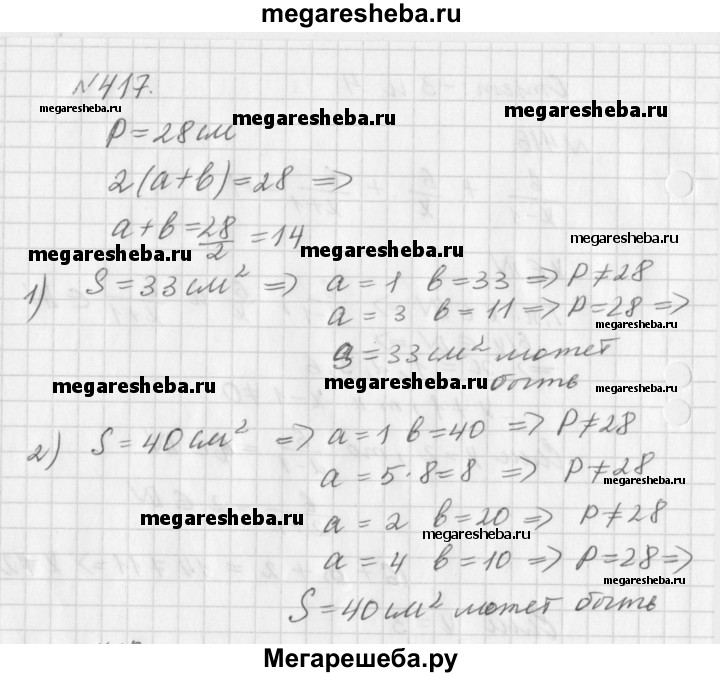 megaresheba.ru
№417.
megaresheba.ru megaresheba.ru megaresheba.ru
P=28см
2(a+b)=28 ⇒
a+b=28/2=14
megaresheba.ru megaresheba.ru megaresheba.ru
1) S=33см² ⇒ a=1 b=33 ⇒ P≠28
a=3 b=11 ⇒ P=28 ⇒
megaresheba.ru
S=33см² может
megaresheba.ru megaresheba.ru быть
2) S=40см² ⇒ a=1 b=40 ⇒ P≠28
a=5·8=8 ⇒ P≠28
megaresheba.ru megaresheba.ru
a=2 b=20 ⇒ P≠28
megaresheba.ru
a=4 b=10 ⇒ P=28 ⇒
megaresheba.ru
S=40см² может быть
Мегарешеба.ру